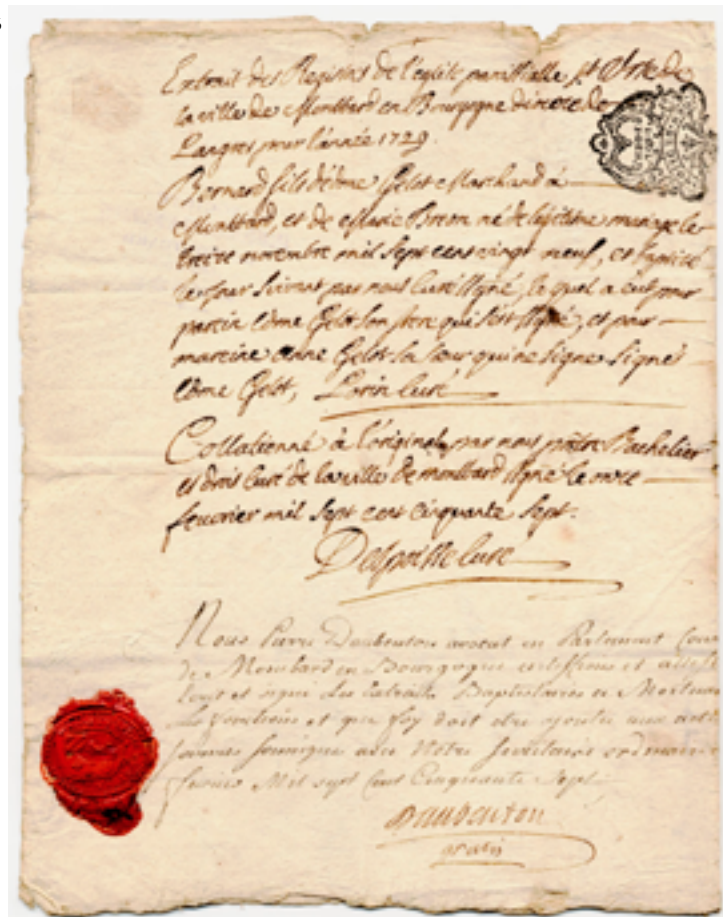 Extrait des Registres de l'eglise parroissialle st Urse de
la ville de Montbard en Bourgogne diocese de
Langres pour l'année 1729.
Bernard fils d'édme Gelot Marchand à
Montbard, et de Marie Breon né de légitime mariage le
treize novembre mil sept cent vingt neuf, et baptisé
le jour suivant par nous curé signé, lequel a eut pour
parein Edme Gelot son frere qui s'est signé, et pour
mareine Anne Gelot sa sœur qui ne signe signé
Edme Gelot, Lorin curé
Collationné à l'original par nous prêtre Bachelier
es droit curé de la ville de montbard signé le onze
fevrier mil sept cent cinquante sept.
curé
Nous Pierre Daubenton avocat en Parlement
de Montbard en Bourgogne certifions et
et signé les Extraits Baptistaires et Mortuaires
et que foy doit etre ajoutée aux
avec Notre ordinaire
fevrier Mil sept Cent Cinquante Sept
Daubenton